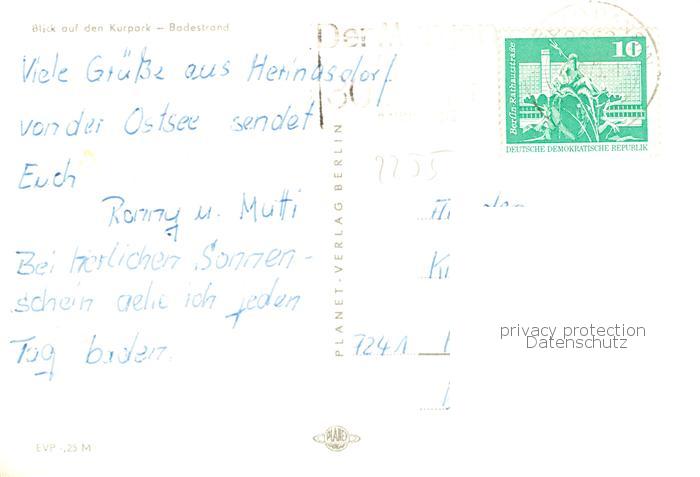 Blick auf den Kurpark – Badestrand
Viele Grüße aus Heringsdorf
von der Ostsee sendet
Euch
Ronny u. Mutti
Bei herlichen Sonnen-
schein gehe ich jeden
Tag baden.
EVP -,25 M
PLANET-VERLAG BERLIN
PLANET
Der
10
Berlin·Rathausstraße
DEUTSCHE DEMOKRATISCHE REPUBLIK
2255
7241
privacy protection
Datenschutz